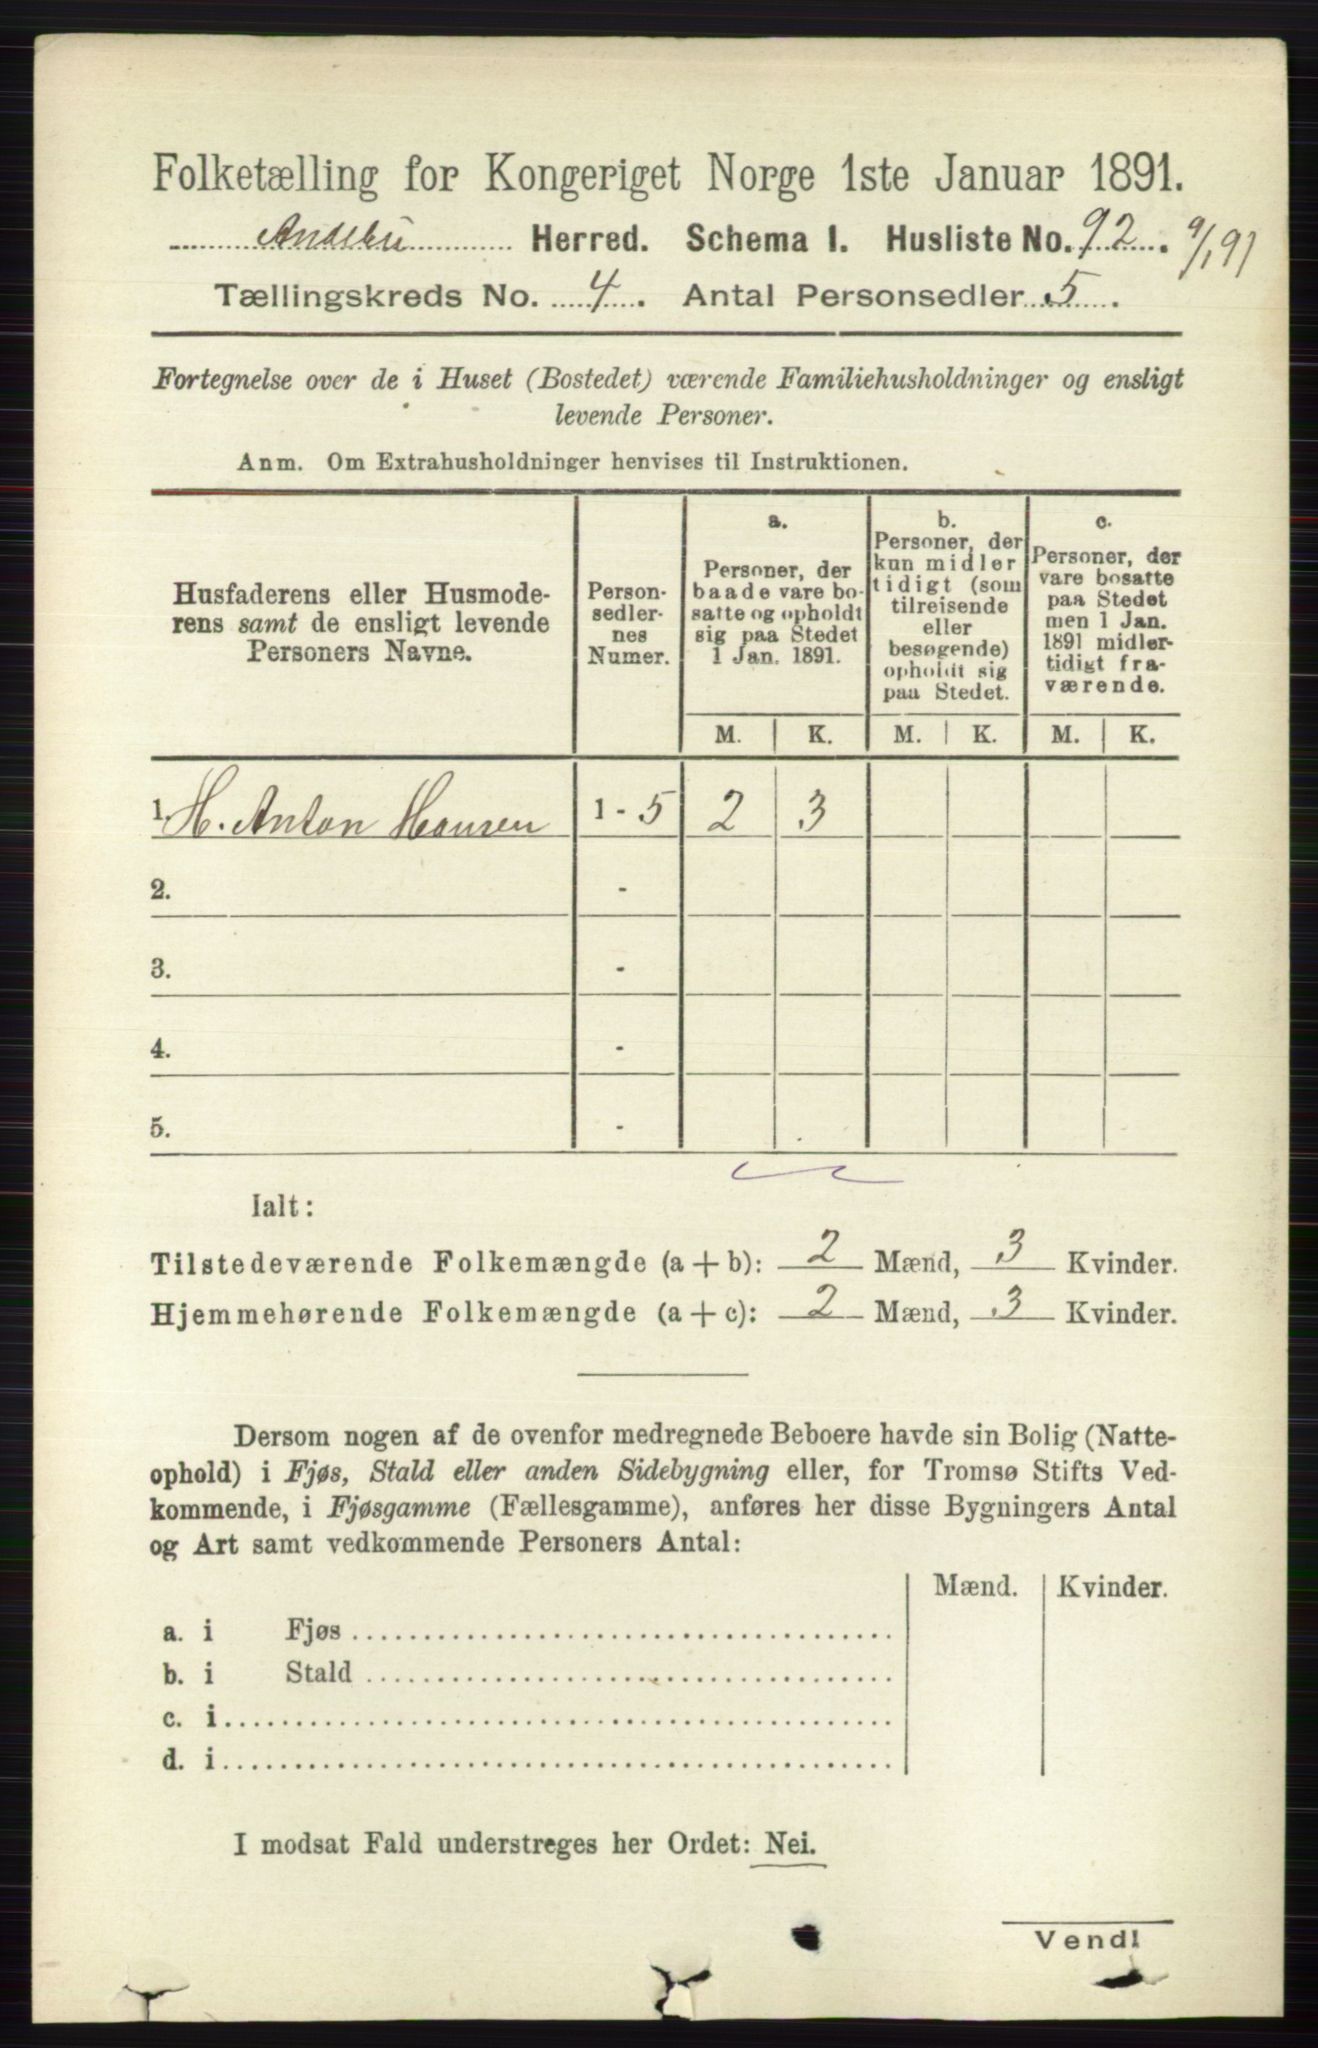 Folketælling for Kongeriget Norge 1ste Januar 1891.
Andebu Herred. Schema I. Husliste No. 92. 9/1 91
Tællingskreds No. 4. Antal Personsedler 5.
Fortegnelse over de i Huset (Bostedet) værende Familiehusholdninger og ensligt
levende Personer.
Anm. Om Extrahusholdninger henvises til Instruktionen.
Husfaderens eller Husmode-
rens samt de ensligt levende
Personers Navne.
Person-
sedler-
nes
Numer.
a.
Personer, der
baade vare bo-
satte og opholdt
sig paa Stedet
1 Jan. 1891.
b.
Personer, der
kun midler
tidigt (som
tilreisende
eller
besøgende)
opholdt sig
paa Stedet.
c.
Personer, der
vare bosatte
paa Stedet
men 1 Jan.
1891 midler-
tidigt fra-
værende.
M. K. M. K. M. K.
1. H. Anton Hansen 1 - 5 2 3
2. -
3. -
4. -
5. -
Ialt:
Tilstedeværende Folkemængde (a + b): 2 Mænd, 3 Kvinder.
Hjemmehørende Folkemængde (a + c): 2 Mænd, 3 Kvinder.
Dersom nogen af de ovenfor medregnede Beboere havde sin Bolig (Natte-
ophold) i Fjøs, Stald eller anden Sidebygning eller, for Tromsø Stifts Ved-
kommende, i Fjøsgamme (Fællesgamme), anføres her disse Bygningers Antal
og Art samt vedkommende Personers Antal:
Mænd. Kvinder.
a. i Fjøs
b. i Stald
c. i
d. i
I modsat Fald understreges her Ordet: Nei.
Vend!